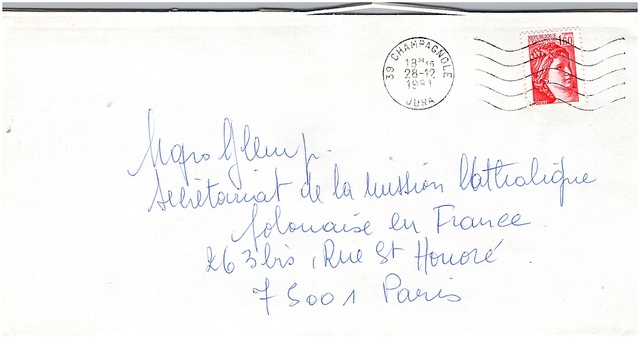 39 CHAMPAGNOLE
18H15
28-12
1981
JURA
1,60
Mgrs Glemp.
Secrétariat de la mission Catholique
Polonaise en France
263 bis, Rue St Honoré
75001 Paris